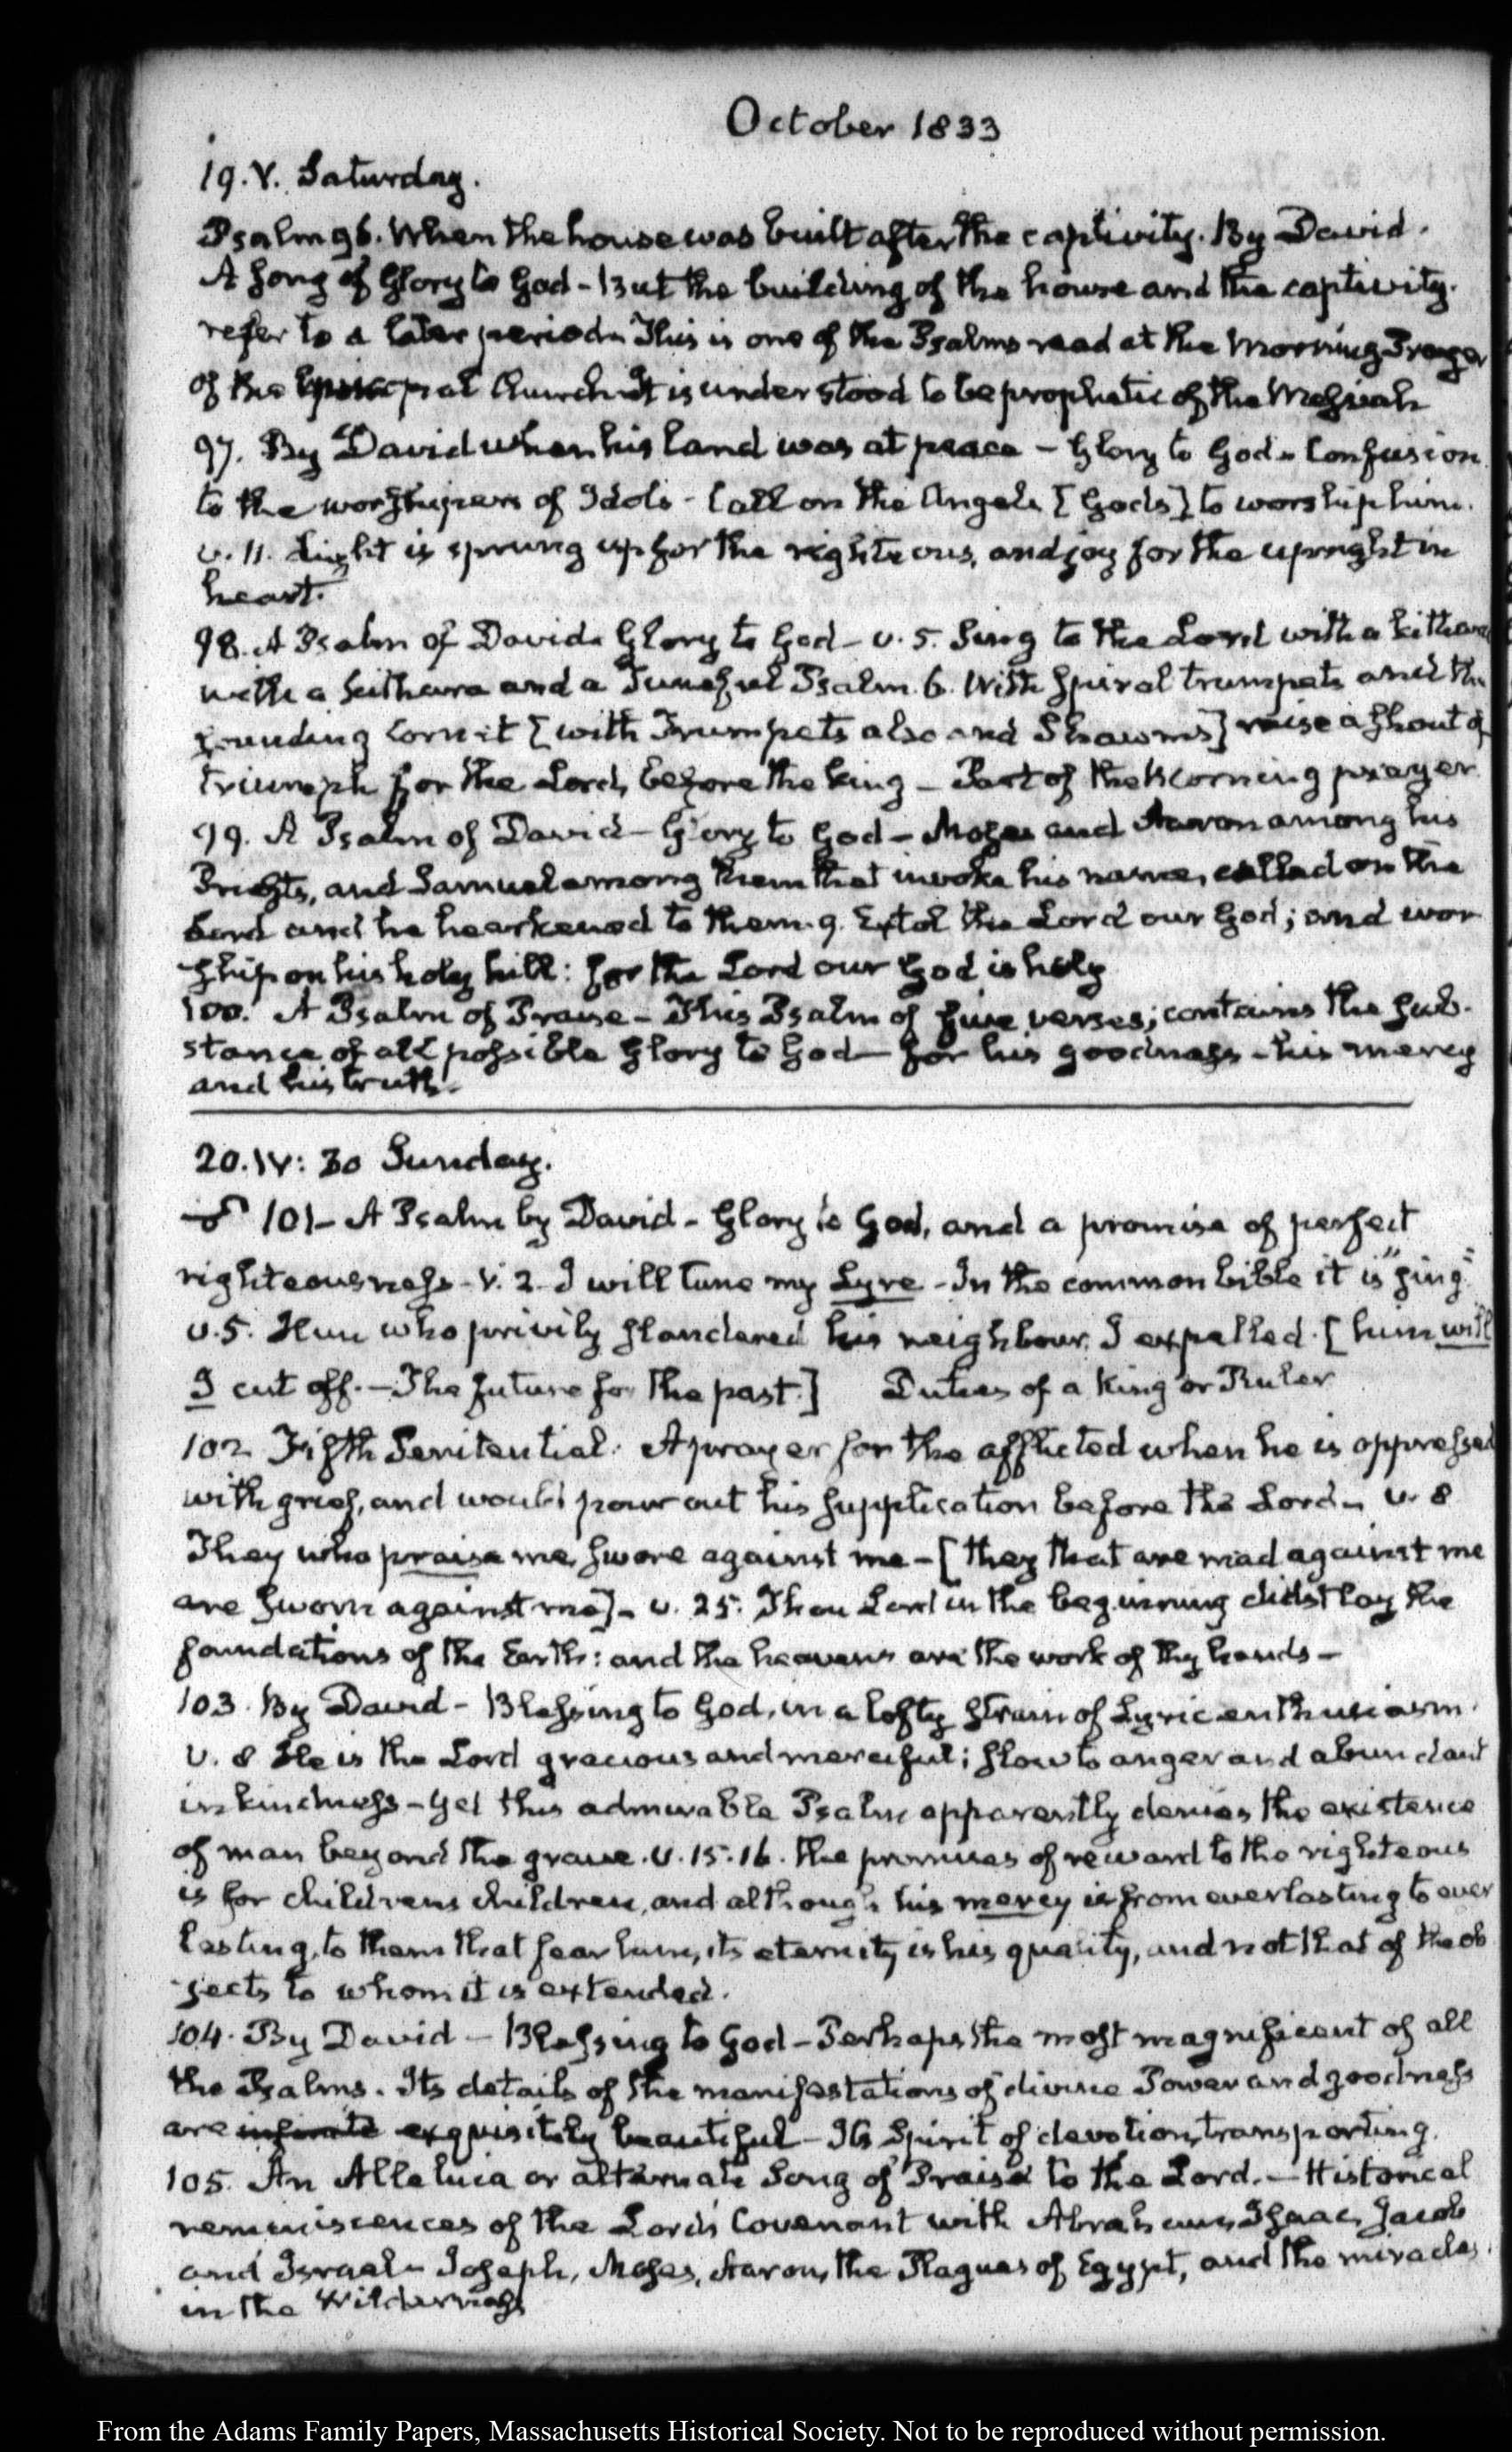 October 1833
19. V. Saturday.
Psalm 96. When the house was built after the captivity. By David.
A Song of Glory to God - But the building of the house and the captivity.
refer to a later period. This is one of the Psalms read at the Morning Prayer
of the Episcopal Church. It is understood to be prophetic of the Messiah
97. By David when his land was at peace - Glory to God - Confusion
to the worshippers of Idols - Call on the Angels [Gods] to worship him.
v. 11. Light is sprung up for the righteous, and joy for the upright in
heart.
98. A Psalm of David - Glory to God - v. 5. Sing to the Lord with a kithara
with a kithara and a Tuneful Psalm. 6. With spiral trumpets and the
sounding Cornet [with Trumpets also and Shawms] raise a shout of
triumph for the Lord, before the king - Part of the Morning prayer
99. A Psalm of David - Glory to God - Moses and Aaron among his
Priests, and Samuel among them that invoke his name, called on the
Lord and he hearkened to them. 9. Extol the Lord our God; and wor
ship on his holy hill: for the Lord our God is holy
100. A Psalm of Praise - This Psalm of five verses; contains the sub-
stance of all possible Glory to God - for his goodness - his mercy
and his truth.
20. IV: 30 Sunday.
101 - A Psalm by David - Glory to God, and a promise of perfect
righteousness - V. 2. I will tune my Lyre - In the common bible it is "sing"
v. 5. Him who privily slandered his neighbour, I expelled. [him will
I cut off. - The future for the past.] Duties of a King or Ruler
102 Fifth Penitential. A prayer for the afflicted when he is oppressed
with grief, and would pour out his supplication before the Lord - v. 8
They who praise me, swore against me - [they that are mad against me
are sworn against me] - v. 25. Thou Lord in the beginning didst lay the
foundations of the Earth: and the heavens are the work of thy hands -
103. By David - Blessing to God, in a lofty strain of Lyric enthusiasm.
v. 8 He is the Lord gracious and merciful; slow to anger and abundant
in kindness - Yet this admirable Psalm apparently denies the existence
of man beyond the grave. v. 15. 16. The promises of reward to the righteous
is for childrens children, and although his mercy is from everlasting to ever
lasting, to them that fear him, its eternity is his quality, and not that of the ob
jects to whom it is extended.
104. By David - Blessing to God - Perhaps the most magnificent of all
the Psalms. Its details of the manifestations of divine Power and goodness
are infinite exquisitely beautiful - Its Spirit of devotion, transporting.
105. An Alleluia or alternate Song of Praise to the Lord. - Historical
reminiscences of the Lord's Covenant with Abraham, Isaac, Jacob
and Israel - Joseph, Moses, Aaron, the Plagues of Egypt, and the miracles
in the Wilderness
From the Adams Family Papers, Massachusetts Historical Society. Not to be reproduced without permission.